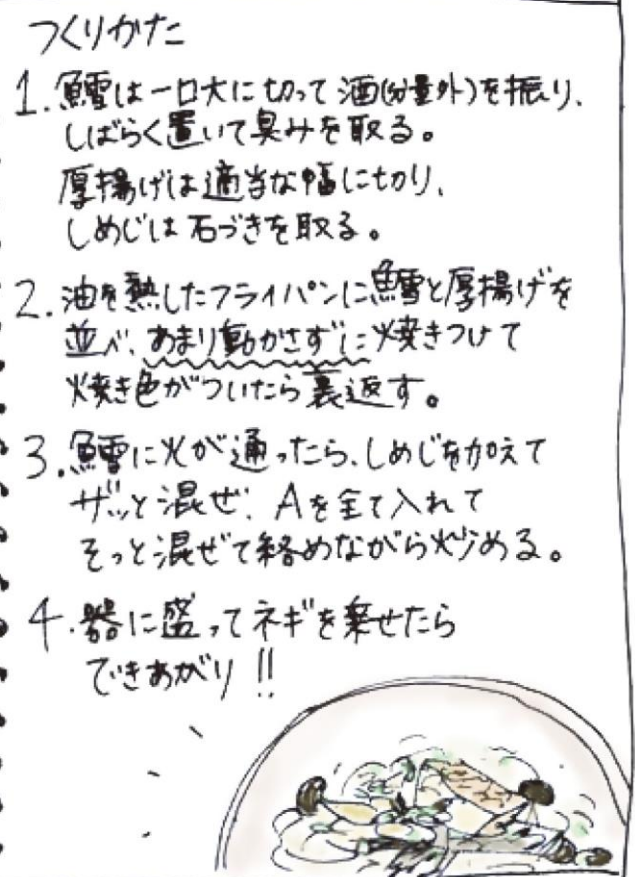 つくりかた
1. 鱈は一口大に切って酒(分量外)を振り、
しばらく置いて臭みを取る。
厚揚げは適当な幅に切り、
しめじは石づきを取る。
2. 油を熱したフライパンに鱈と厚揚げを
並べ、あまり動かさずに焼きつけて
焼き色がついたら裏返す。
3. 鱈に火が通ったら、しめじを加えて
ザッと混ぜ、Aを全て入れて
そっと混ぜて絡めながら炒める。
4. 器に盛ってネギを乗せたら
できあがり!!